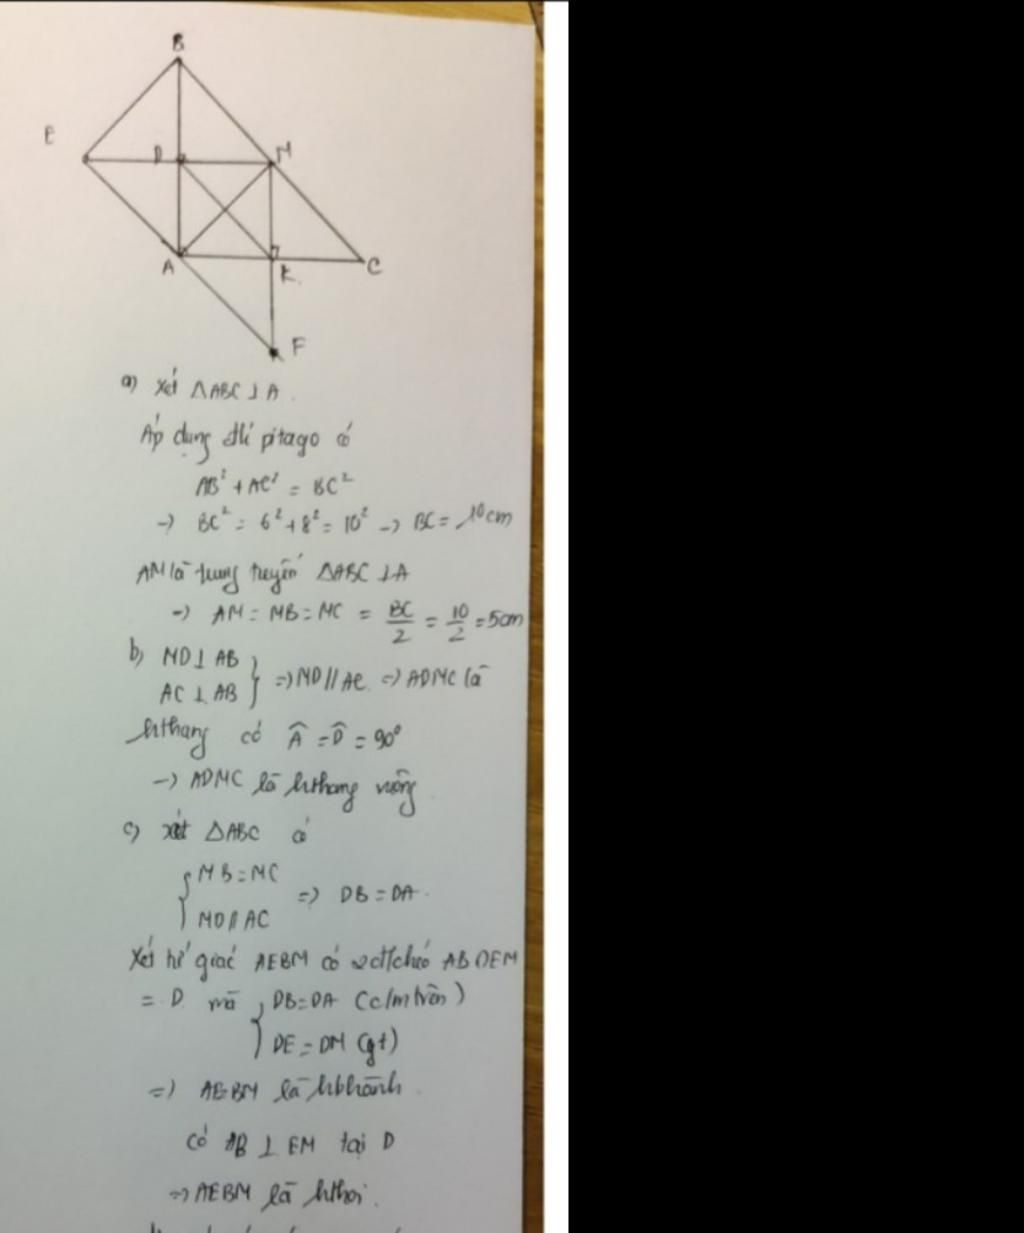 B
E
D
M
A
K
C
F
a) Xét △ABC ⊥ A.
Áp dụng đlí pitago có
AB² + AC² = BC²
→ BC² = 6² + 8² = 10² → BC = 10cm
AM là trung tuyến △ABC ⊥ A
→ AM = MB = MC = BC/2 = 10/2 = 5cm
b) MD ⊥ AB
AC ⊥ AB } ⇒ MD // AC ⇒ ADMC là
hthang có Â = D̂ = 90°
→ ADMC là hthang vuông
c) xét △ABC có
{ MB = MC
MD // AC ⇒ DB = DA.
Xét tứ giác AEBM có 2 đ/chéo AB ∩ EM
= D mà { DB = DA (c/m trên)
DE = DM (gt)
⇒ AEBM là hbhành.
có AB ⊥ EM tại D
⇒ AEBM là hthoi.